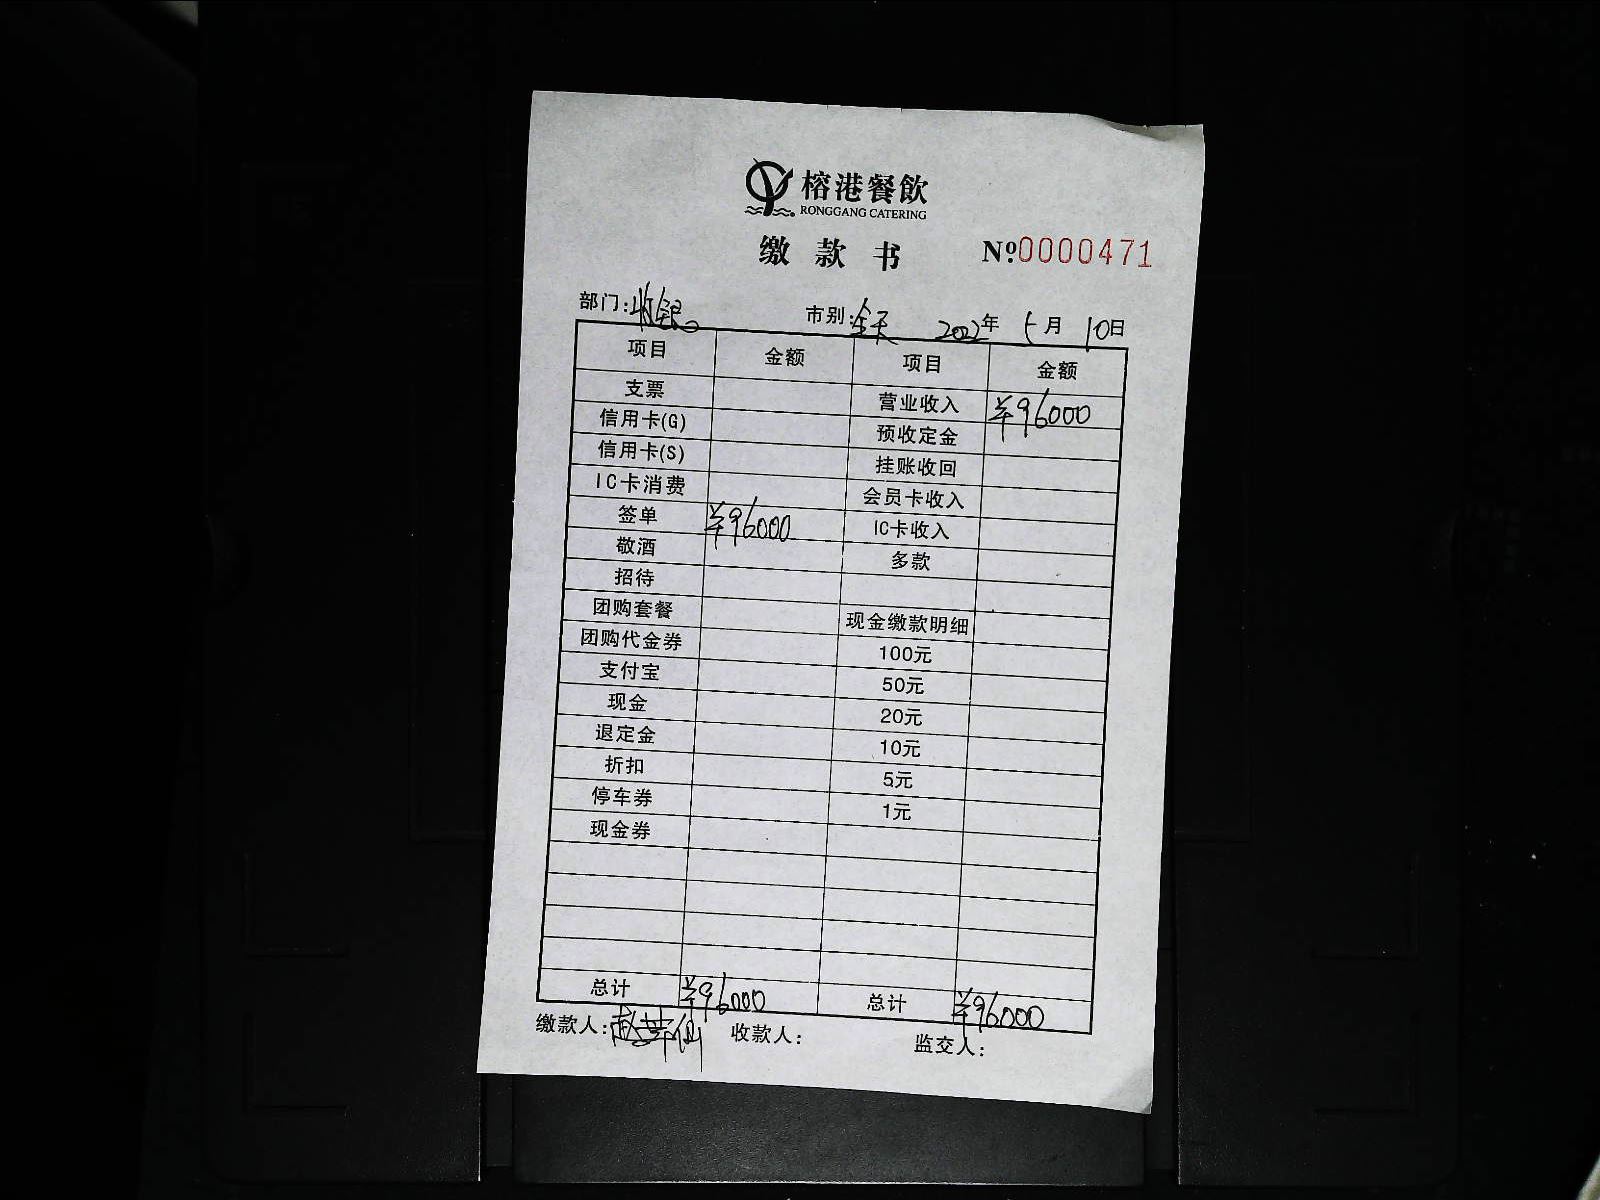 榕港餐飲
RONGGANG CATERING
缴款书 Nº:0000471
部门:收银 市别:全天 2022年 5月 10日
项目 金额 项目 金额
支票 营业收入 ¥96000
信用卡(G) 预收定金
信用卡(S) 挂账收回
IC卡消费 会员卡收入
签单 ¥96000 IC卡收入
敬酒 多款
招待
团购套餐 现金缴款明细
团购代金券 100元
支付宝 50元
现金 20元
退定金 10元
折扣 5元
停车券 1元
现金券
总计 ¥96000 总计 ¥96000
缴款人: 收款人: 监交人: